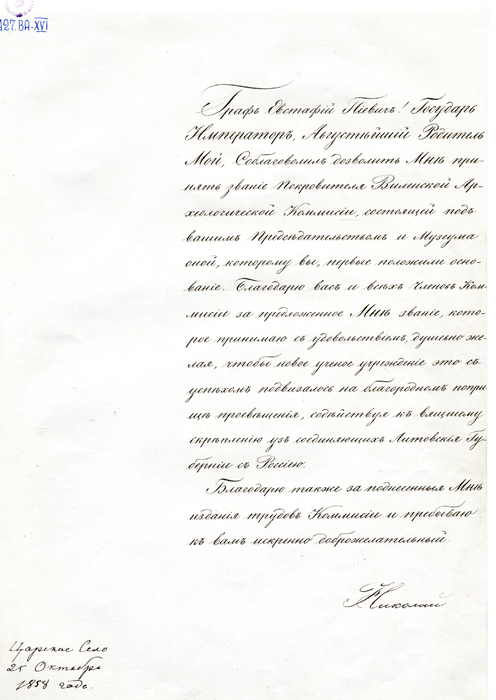 427.ВА-XVI
Графъ Евстафій Піевичъ! Государь
Императоръ, Августѣйшій Родитель
Мой, Соблаговолилъ дозволить Мнѣ при-
нять званіе Покровителя Виленской Ар-
хеологической Коммисіи, состоящей подъ
вашимъ Предсѣдательствомъ и Музеума
оной, которому вы, первые положили осно-
ваніе. Благодарю васъ и всѣхъ Членовъ Ком-
мисіи за предложенное Мнѣ званіе, кото-
рое принимаю съ удовольствіемъ, душевно же-
лая, чтобы новое ученое учрежденіе это съ
успѣхомъ подвизалось на благородномъ попри-
щѣ просвѣщенія, содѣйствуя къ вящшему
скрѣпленію узъ соединяющихъ Литовскія Гу-
берніи съ Россіею.
Благодарю также за поднесенныя Мнѣ
изданія трудовъ Коммисіи и пребываю
къ вамъ искренно доброжелательный.
Николай
Царское Село
25 Октября
1858 года.